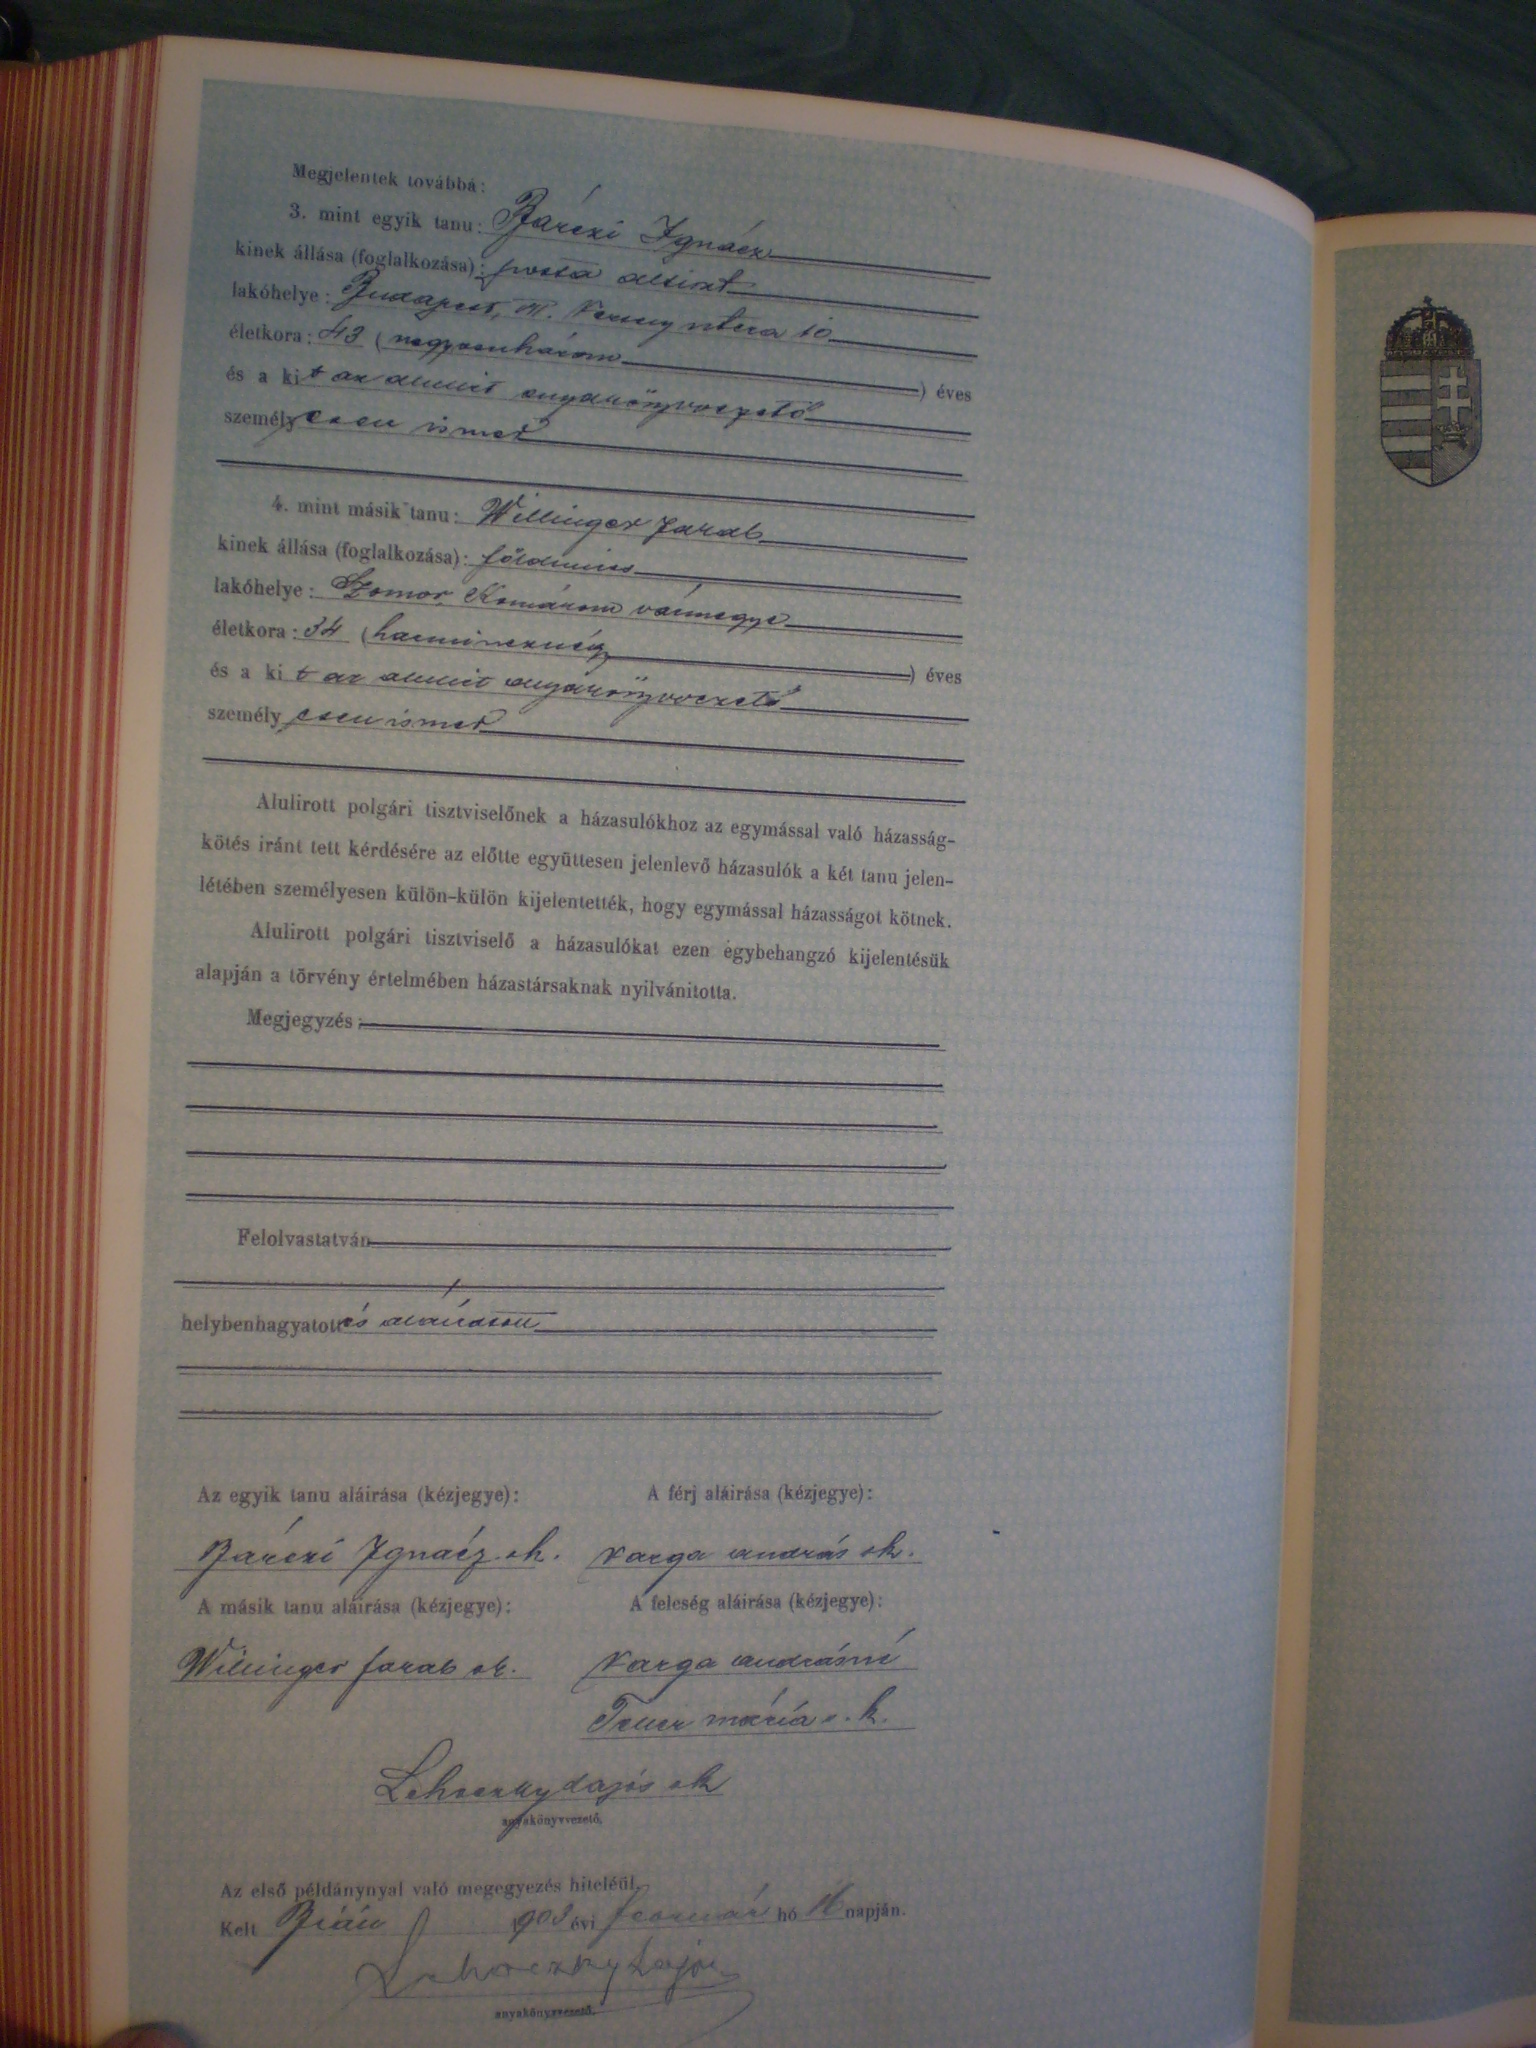 Megjelentek továbbá:
3. mint egyik tanu: Bárczi Ignácz
kinek állása (foglalkozása): posta altiszt
lakóhelye: Budapest, utcza 10
életkora: 43 (negyvenhárom) éves
és a kit az alulirt anyakönyvvezető
személyesen ismer
4. mint másik tanu: Willinger Jakab
kinek állása (foglalkozása): földmíves
lakóhelye: Szomor, Komárom vármegye
életkora: 34 (harmincznégy) éves
és a kit az alulirt anyakönyvvezető
személyesen ismer
Alulirott polgári tisztviselőnek a házasulókhoz az egymással való házasság-
kötés iránt tett kérdésére az előtte együttesen jelenlevő házasulók a két tanu jelen-
létében személyesen külön-külön kijelentették, hogy egymással házasságot kötnek.
Alulirott polgári tisztviselő a házasulókat ezen egybehangzó kijelentésük
alapján a törvény értelmében házastársaknak nyilvánitotta.
Megjegyzés:
Felolvastatván
helybenhagyatott és aláiratott
Az egyik tanu aláirása (kézjegye): A férj aláirása (kézjegye):
Bárczi Ignácz sk. Varga András sk.
A másik tanu aláirása (kézjegye): A feleség aláirása (kézjegye):
Willinger Jakab sk. Varga Andrásné
Mária s. k.
Lehoczky Lajos sk
anyakönyvvezető.
Az első példánynyal való megegyezés hiteléül.
Kelt Bián 1903 évi február hó 16 napján.
Lehoczky Lajos
anyakönyvvezető.